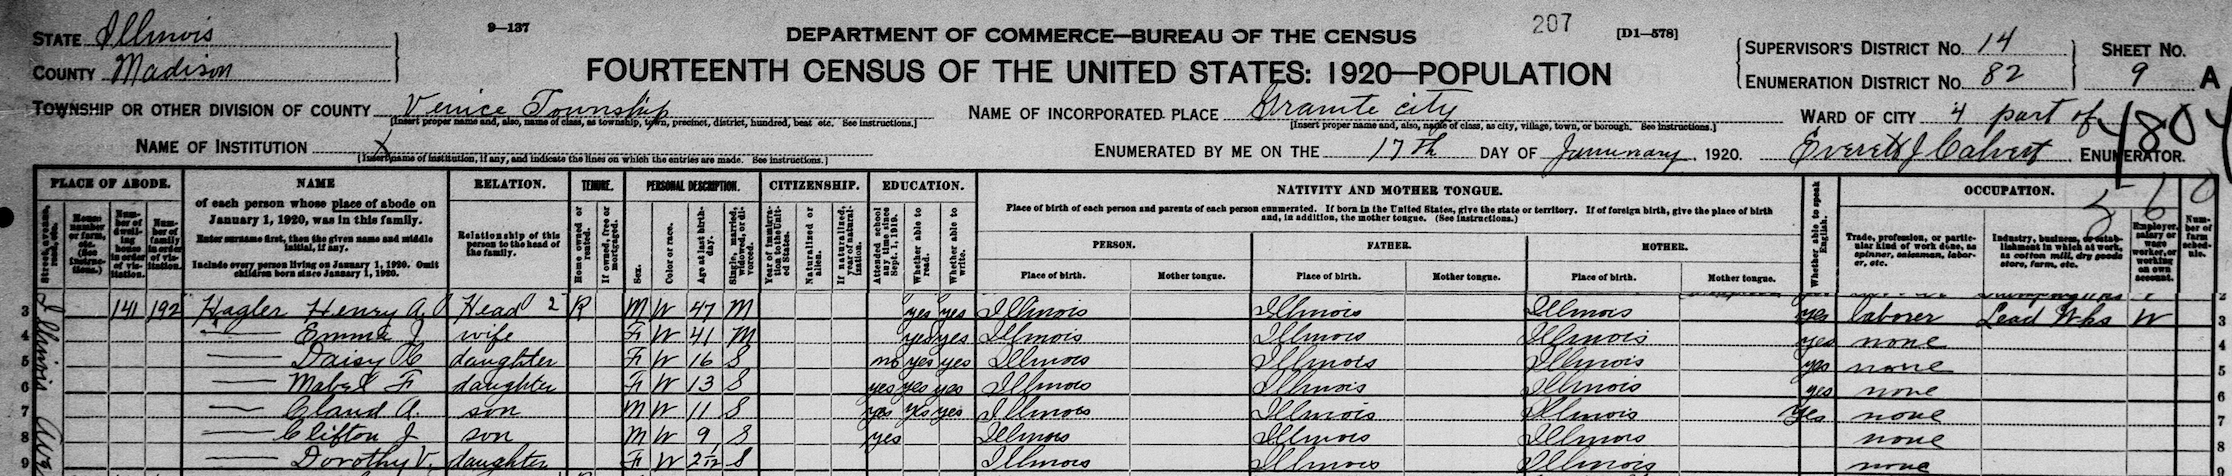 STATE Illinois
COUNTY Madison
9—137
DEPARTMENT OF COMMERCE—BUREAU OF THE CENSUS
207
[D1—578]
FOURTEENTH CENSUS OF THE UNITED STATES: 1920—POPULATION
SUPERVISOR'S DISTRICT NO. 14
ENUMERATION DISTRICT NO. 82
SHEET NO.
9 A
TOWNSHIP OR OTHER DIVISION OF COUNTY Venice Township
[Insert proper name and, also, name of class, as township, town, precinct, district, hundred, beat etc. See instructions.]
NAME OF INCORPORATED PLACE Granite city
[Insert proper name and, also, name of class, as city, village, town, or borough. See instructions.]
WARD OF CITY 4 part of
4804
NAME OF INSTITUTION X
[Insert name of institution, if any, and indicate the lines on which the entries are made. See instructions.]
ENUMERATED BY ME ON THE 17th DAY OF Januuary, 1920. Everett J Calvert ENUMERATOR.
560
PLACE OF ABODE.
Street, avenue, road, etc.
House number or farm, etc. (See instructions.)
Number of dwelling house in order of visitation.
Number of family in order of visitation.
NAME
of each person whose place of abode on
January 1, 1920, was in this family.
Enter surname first, then the given name and middle
initial, if any.
Include every person living on January 1, 1920. Omit
children born since January 1, 1920.
RELATION.
Relationship of this
person to the head of
the family.
TENURE.
Home owned or rented.
If owned, free or mortgaged.
PERSONAL DESCRIPTION.
Sex.
Color or race.
Age at last birthday.
Single, married, widowed, or divorced.
CITIZENSHIP.
Year of immigration to the United States.
Naturalized or alien.
If naturalized, year of naturalization.
EDUCATION.
Attended school any time since Sept. 1, 1919.
Whether able to read.
Whether able to write.
NATIVITY AND MOTHER TONGUE.
Place of birth of each person and parents of each person enumerated. If born in the United States, give the state or territory. If of foreign birth, give the place of birth
and, in addition, the mother tongue. (See instructions.)
PERSON.
Place of birth.
Mother tongue.
FATHER.
Place of birth.
Mother tongue.
MOTHER.
Place of birth.
Mother tongue.
Whether able to speak English.
OCCUPATION.
Trade, profession, or particular kind of work done, as spinner, salesman, laborer, etc.
Industry, business, or establishment in which at work, as cotton mill, dry goods store, farm, etc.
Employer, salary or wage worker, or working on own account.
Number of farm schedule.
Illinois Ave
3 141 192 Hagler Henry A. Head 2 R M W 47 M yes yes Illinois Illinois Illinois yes laborer Lead Wks W 3
4 — Emma J wife F W 41 M yes yes Illinois Illinois Illinois yes none 4
5 — Daisy daughter F W 16 S no yes yes Illinois Illinois Illinois yes none 5
6 — Mabel F daughter F W 13 S yes yes yes Illinois Illinois Illinois yes none 6
7 — Claud A. son M W 11 S yes yes yes Illinois Illinois Illinois yes none 7
8 — Clifton J son M W 9 S yes Illinois Illinois Illinois none 8
9 — Dorothy V. daughter F W 2 1/12 S Illinois Illinois Illinois none 9